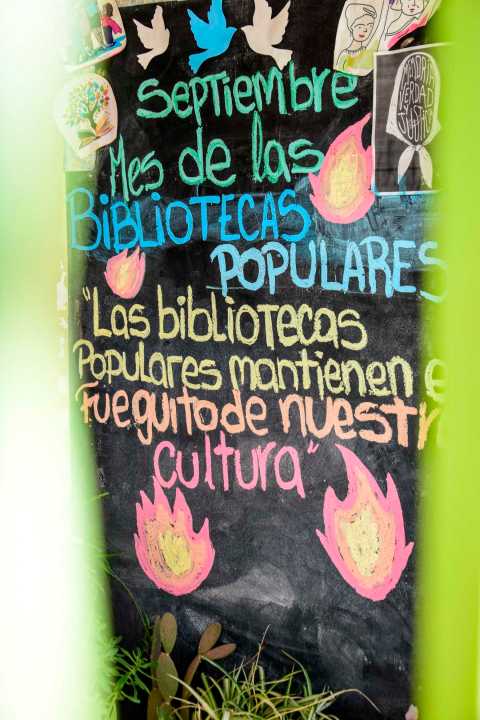 MEMORIA
VERDAD
JUSTICIA
Septiembre
Mes de las
BIBLIOTECAS
POPULARES
"Las bibliotecas
Populares mantienen e
Fueguito de nuestr
cultura"